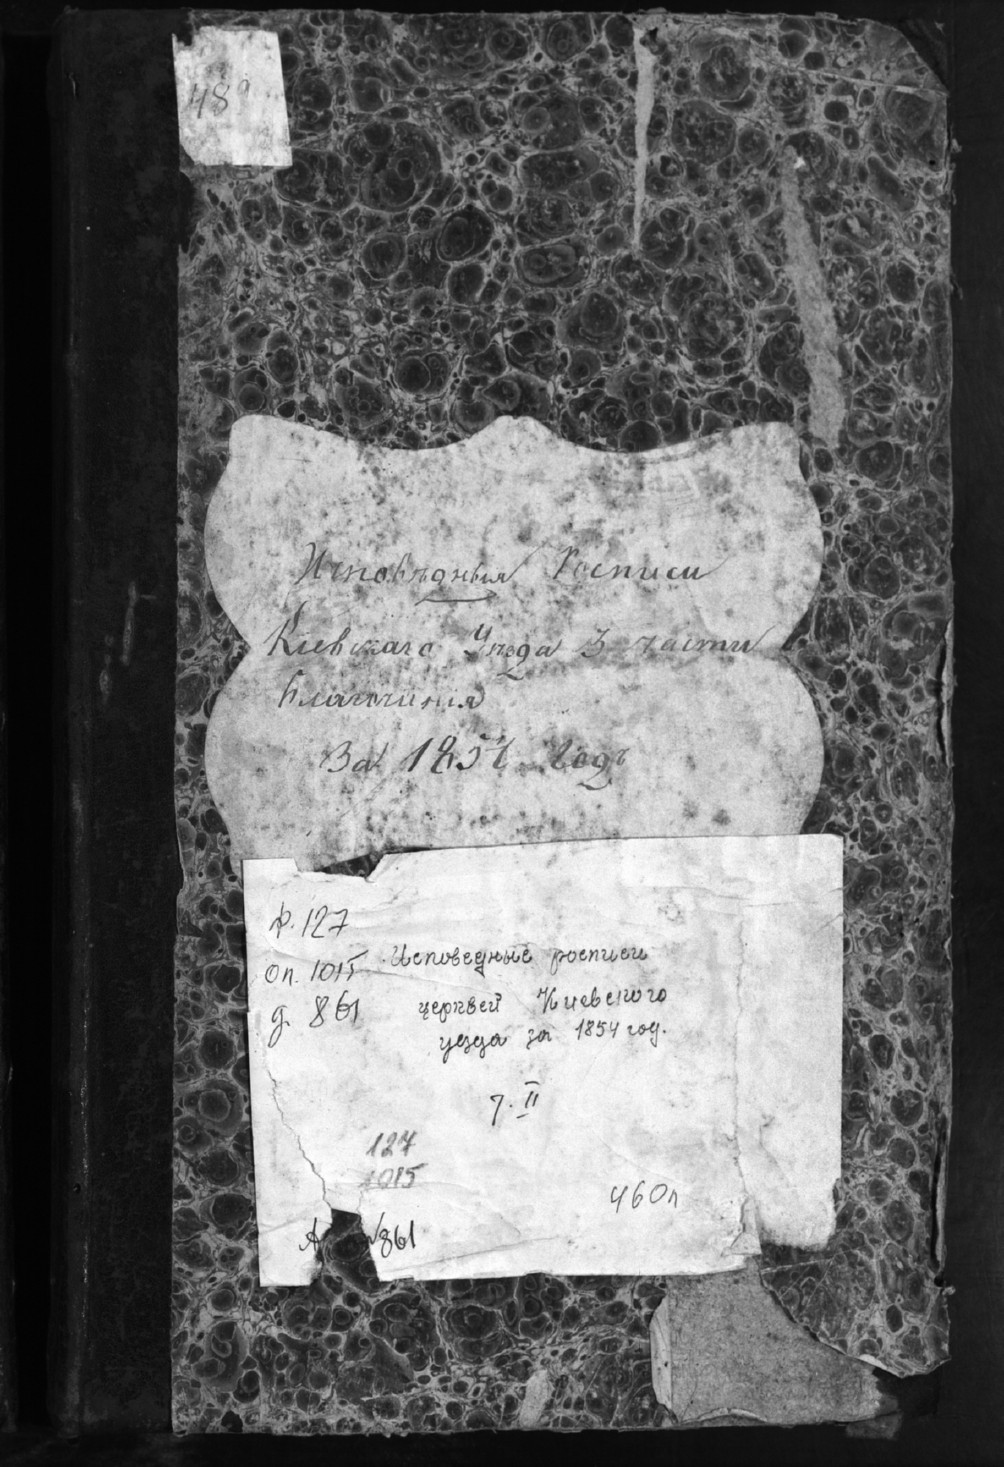 48
Исповѣдныя Росписи
Кіевскаго Уѣзда 3 части
Благочинія
За 185 годъ
ф. 127
оп. 1015
д. 861
Исповедные росписи
церквей Киевского
уезда за 1854 год.
т. II
127
1015
861
460л